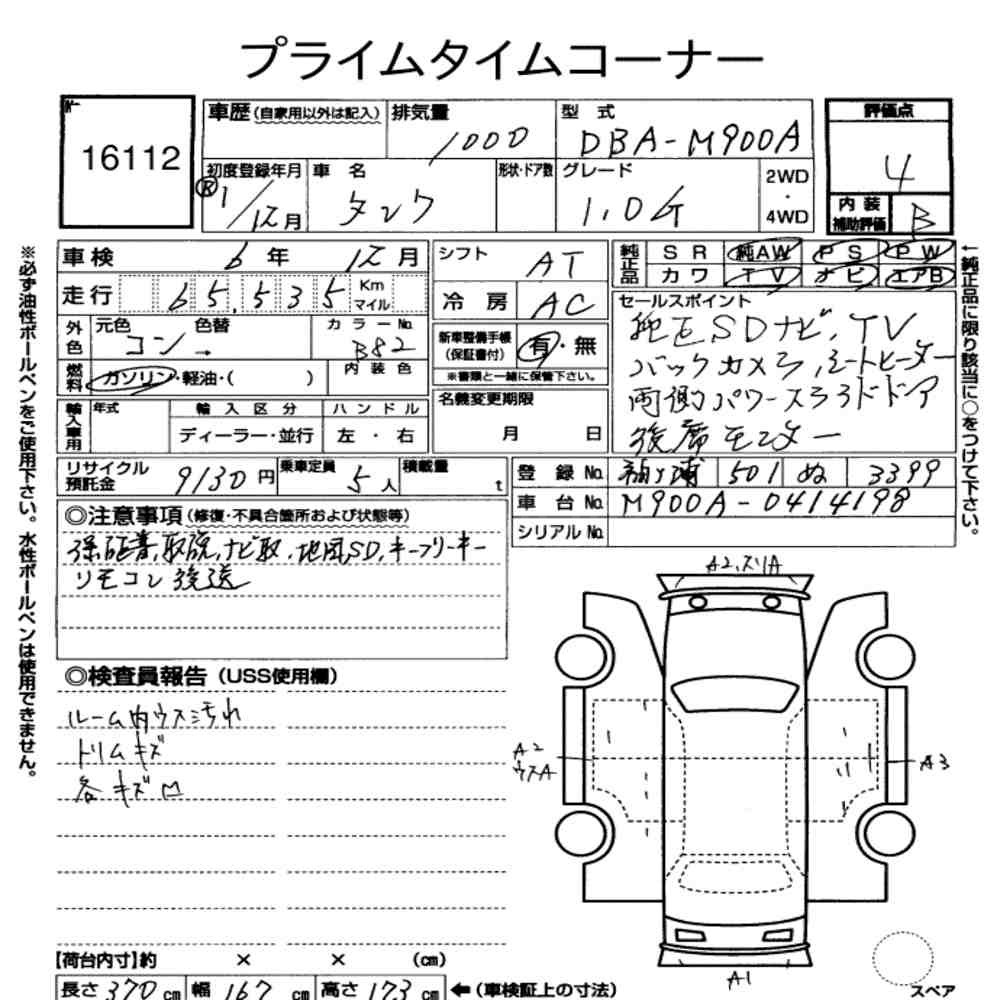 プライムタイムコーナー
№
16112
車歴(自家用以外は記入) 排気量 1000 型式 DBA-M900A
評価点 4
内装補助評価 B
初度登録年月 Ⓡ1/12月 車名 タンク 形状・ドア数 グレード 1.0G 2WD・4WD
車検 6年 12月
走行 65,535 Km マイル
外色 元色 コン→ 色替 カラーNo. B82
燃料 ガソリン・軽油・( ) 内装色
輸入車用 年式 輸入区分 ハンドル
ディーラー・並行 左・右
シフト AT
冷房 AC
新車整備手帳(保証書付) 有・無
※書類と一緒に保管下さい。
名義変更期限
月 日
純正品 SR 純AW PS PW
カワ TV ナビ エアB
セールスポイント
純正SDナビ、TV
バックカメラ、シートヒーター
両側パワースライドドア
後席モニター
リサイクル預託金 9130円 乗車定員 5人 積載量 t
登録No. 袖ヶ浦 501 ぬ 3399
車台No. M900A-0414198
シリアルNo.
◎注意事項(修復・不具合箇所および状態等)
保証書、取説、ナビ取、地図SD、キーフリーキー
リモコン後送
◎検査員報告(USS使用欄)
ルーム内ウス汚れ
トリムキズ
各キズ凹
A2、スリA
A2
ウスA
A3
A1
スペア
【荷台内寸】約 × × (cm)
長さ 370 cm 幅 167 cm 高さ 173 cm ←(車検証上の寸法)
※必ず油性ボールペンをご使用下さい。水性ボールペンは使用できません。
←純正品に限り該当に○をつけて下さい。